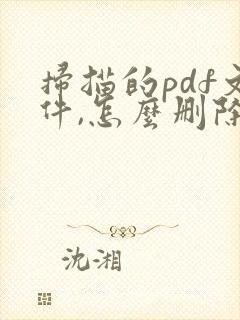 掃描的pdf文
件,怎麼刪除
沈湘